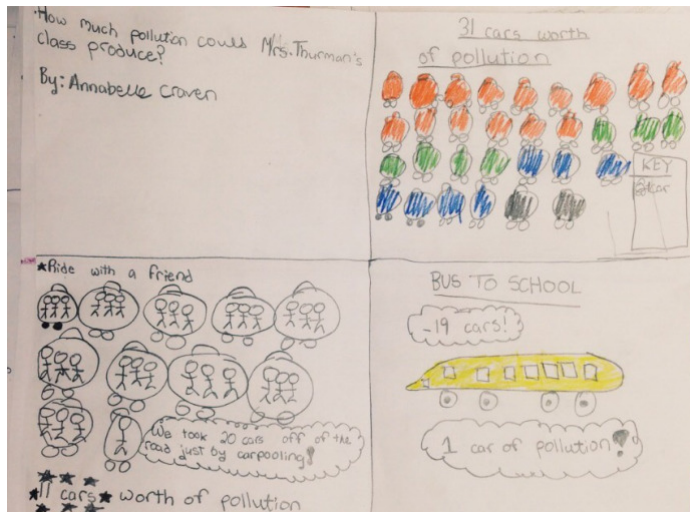 How much pollution could Mrs. Thurman's
class produce?
By: Annabelle Craven
31 cars worth
of pollution
KEY
=1car
★Ride with a friend
We took 20 cars off of the
road just by carpooling!
★11 cars★ worth of pollution
BUS TO SCHOOL
-19 cars!
1 car of pollution!